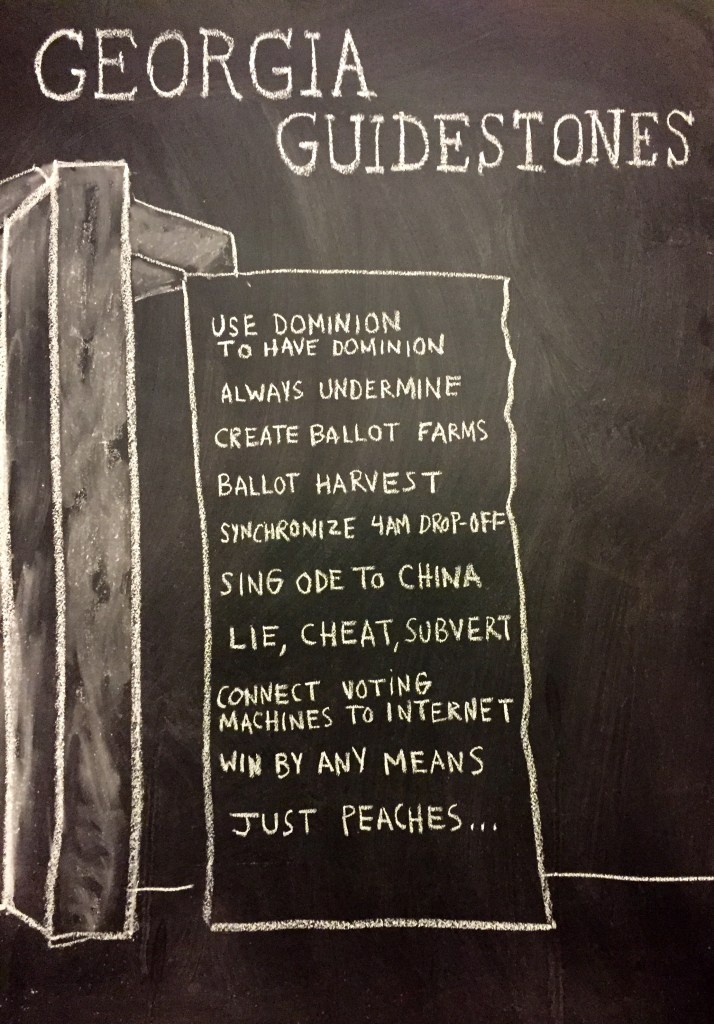 GEORGIA
GUIDESTONES
USE DOMINION
TO HAVE DOMINION
ALWAYS UNDERMINE
CREATE BALLOT FARMS
BALLOT HARVEST
SYNCHRONIZE 4AM DROP-OFF
SING ODE TO CHINA
LIE, CHEAT, SUBVERT
CONNECT VOTING
MACHINES TO INTERNET
WIN BY ANY MEANS
JUST PEACHES...